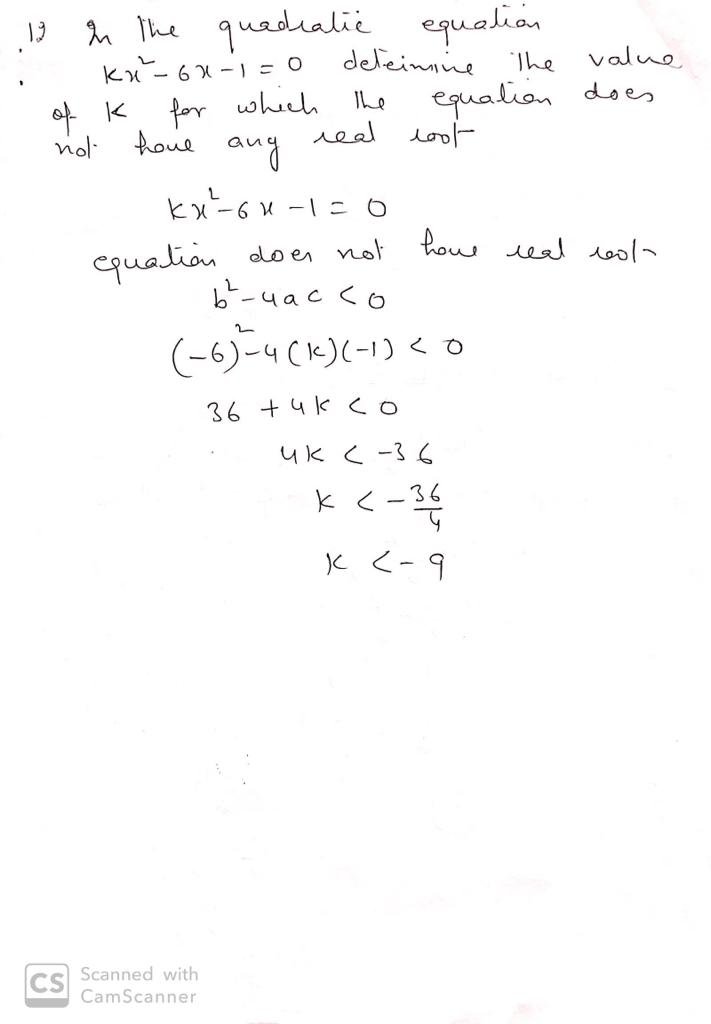 19 In the quadratic equation
kx² - 6x - 1 = 0 determine the value
of K for which the equation does
not have any real root
kx² - 6x - 1 = 0
equation does not have real root
b² - 4ac < 0
(-6)² - 4(k)(-1) < 0
36 + 4k < 0
4k < -36
k < -36/4
k < -9
CS Scanned with
CamScanner